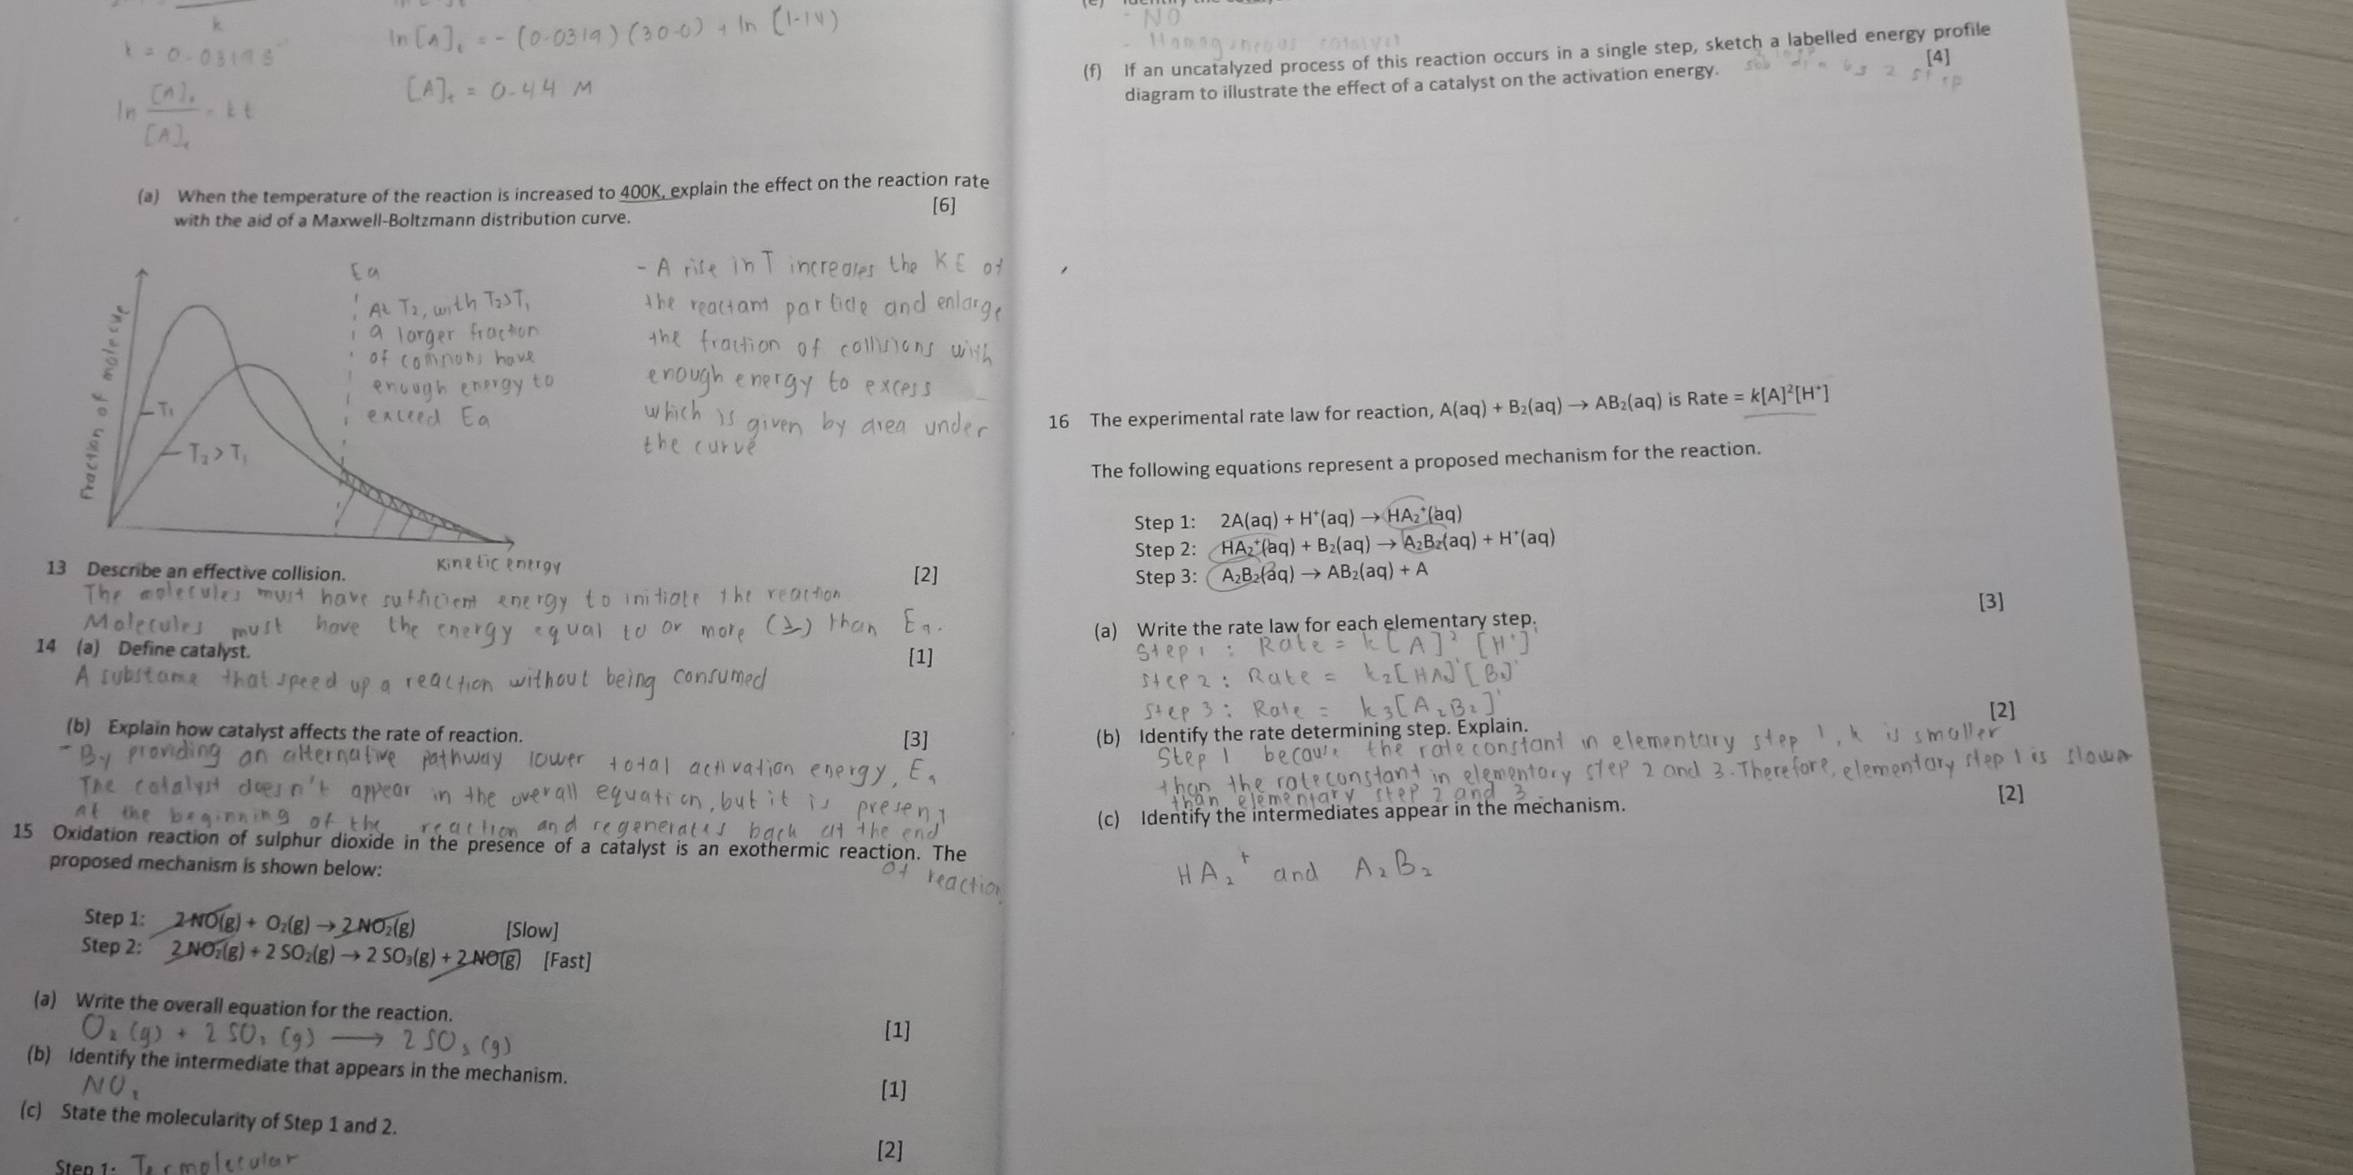 k
k = 0.03193
ln [A]₀/[A]ₜ = kt
ln[A]ₜ = -(0.0319)(30.0) + ln (1.14)
[A]ₜ = 0.44 M
(a) When the temperature of the reaction is increased to 400K, explain the effect on the reaction rate
with the aid of a Maxwell-Boltzmann distribution curve.
[6]
Fraction of molecule
T₁
T₂ > T₁
Ea
At T₂, with T₂>T₁
a larger fraction
of
have
enough energy to
exceed Ea
Kinetic energy
- A rise in T increases the KE of
the reactant particle and enlarge
the fraction of collisions with
enough energy to excess
which is given by area under
the curve
13 Describe an effective collision.
[2]
The molecules must have sufficient energy to initiate the reaction
Molecules must have the energy equal to or more (≥) than Ea.
14 (a) Define catalyst.
[1]
A substame that speed up a reaction without being consumed
(b) Explain how catalyst affects the rate of reaction.
[3]
- By providing an alternative pathway lower total activation energy, Ea
The catalyst doesn't appear in the overall equation, but it is present
at the beginning of the reaction and regenerates back at the end
of reaction
15 Oxidation reaction of sulphur dioxide in the presence of a catalyst is an exothermic reaction. The
proposed mechanism is shown below:
Step 1: 2 NO(g) + O₂(g) → 2 NO₂(g) [Slow]
Step 2: 2 NO₂(g) + 2 SO₂(g) → 2 SO₃(g) + 2 NO(g) [Fast]
(a) Write the overall equation for the reaction.
[1]
O₂ (g) + 2 SO₂ (g) → 2 SO₃ (g)
(b) Identify the intermediate that appears in the mechanism.
[1]
NO₂
(c) State the molecularity of Step 1 and 2.
[2]
Step 1: Termolecular
- NO
- Homogeneous catalyst
(f) If an uncatalyzed process of this reaction occurs in a single step, sketch a labelled energy profile
diagram to illustrate the effect of a catalyst on the activation energy.
[4]
2 step
16 The experimental rate law for reaction, A(aq) + B₂(aq) → AB₂(aq) is Rate = k[A]²[H⁺]
The following equations represent a proposed mechanism for the reaction.
Step 1: 2A(aq) + H⁺(aq) → HA₂⁺(aq)
Step 2: HA₂⁺(aq) + B₂(aq) → A₂B₂(aq) + H⁺(aq)
Step 3: A₂B₂(aq) → AB₂(aq) + A
(a) Write the rate law for each elementary step.
[3]
Step 1 : Rate = k[A]² [H⁺]¹
Step 2 : Rate = k₂[HA₂]¹[B₂]¹
Step 3 : Rate = k₃[A₂B₂]¹
(b) Identify the rate determining step. Explain.
[2]
Step 1 because the rate constant in elementary step 1, k is smaller
than the rate constant in elementary step 2 and 3. Therefore, elementary step 1 is slower
than elementary step 2 and 3.
(c) Identify the intermediates appear in the mechanism.
[2]
HA₂⁺ and A₂B₂